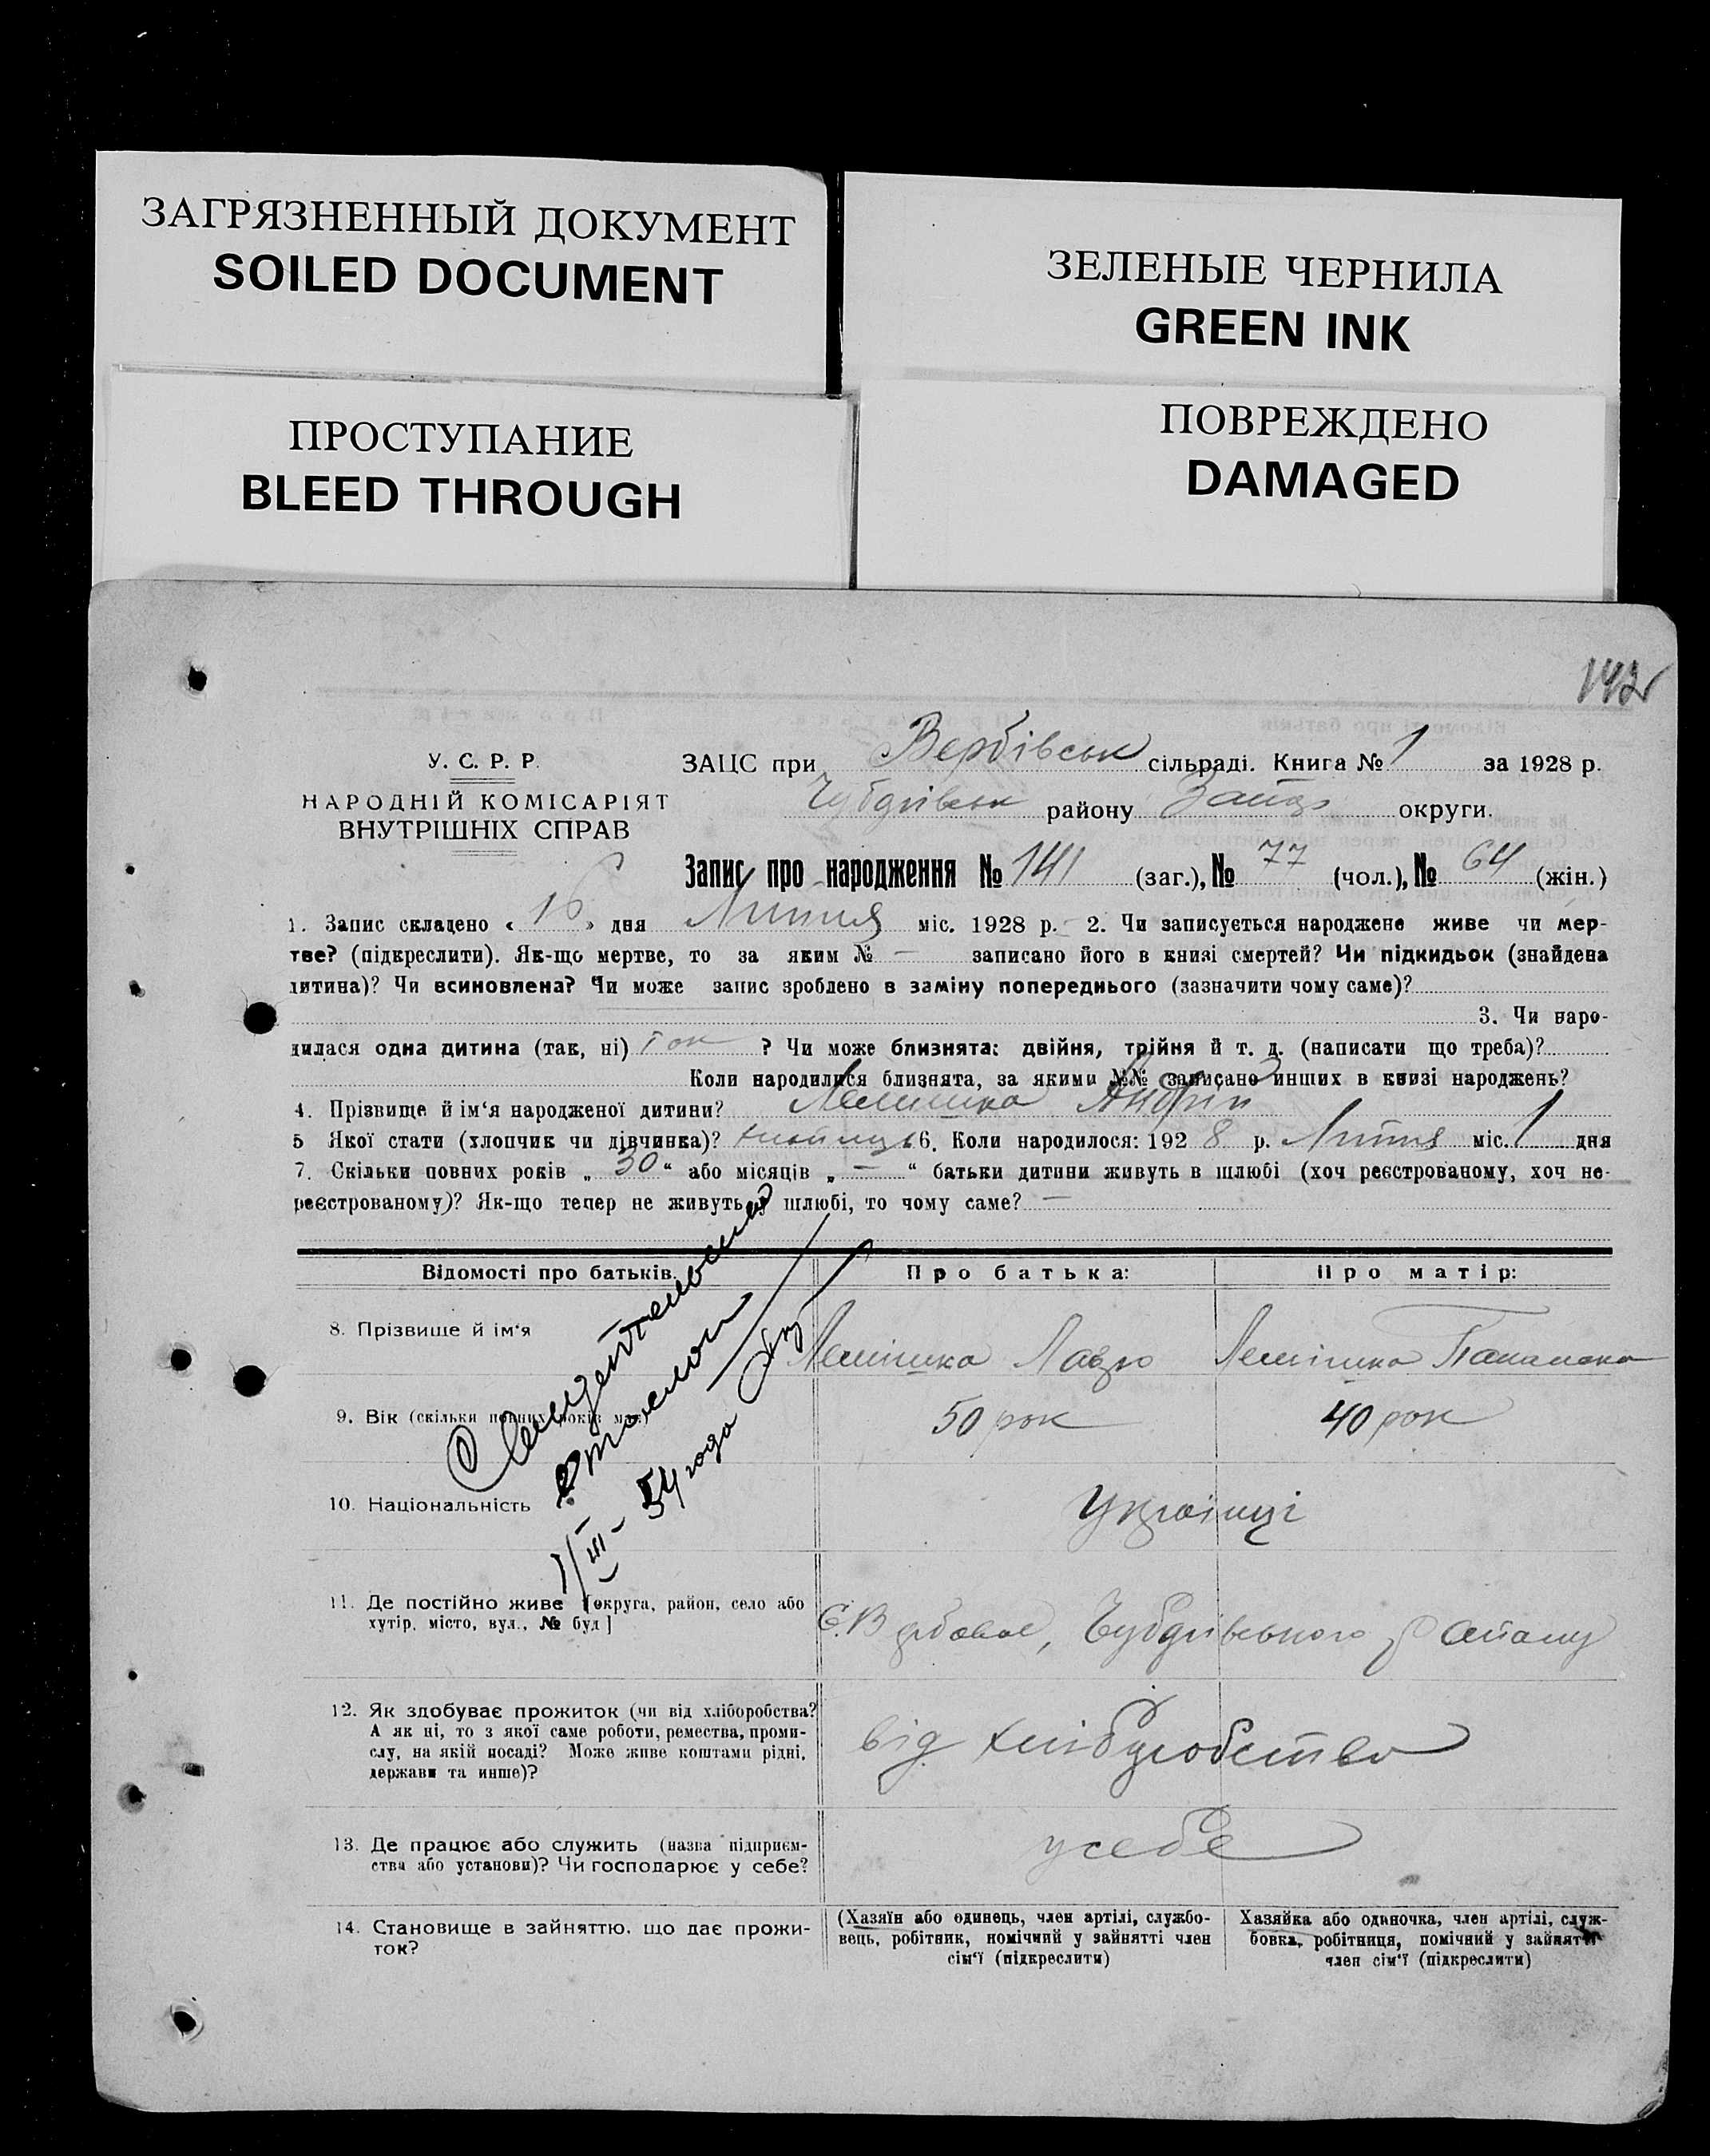 ЗАГРЯЗНЕННЫЙ ДОКУМЕНТ
SOILED DOCUMENT
ЗЕЛЕНЫЕ ЧЕРНИЛА
GREEN INK
ПРОСТУПАНИЕ
BLEED THROUGH
ПОВРЕЖДЕНО
DAMAGED
142
У. С. Р. Р.
НАРОДНІЙ КОМІСАРІЯТ
ВНУТРІШНІХ СПРАВ
ЗАЦС при Вербівськ сільраді. Книга № 1 за 1928 р.
Чубарівськ району Запор округи.
Запис про народження № 141 (заг.), № 77 (чол.), № 64 (жін.)
1. Запис складено « 16 » дня Липня міс. 1928 р. - 2. Чи записується народжене живе чи мер-
тве? (підкреслити). Як-що мертве, то за яким № — записано його в книзі смертей? Чи підкидьок (знайдена
дитина)? Чи всиновлена? Чи може запис зроблено в заміну попереднього (зазначити чому саме)?
3. Чи наро-
дилася одна дитина (так, ні) так ? Чи може близнята: двійня, трійня й т. д. (написати що треба)?
Коли народилися близнята, за якими №№ записано инших в книзі народжень?
4. Прізвище й ім‘я народженої дитини? Лемішка Андрій
5 Якої стати (хлопчик чи дівчинка)? хлопець 6. Коли народилося: 192 8 р. Липня міс. 1 дня
7. Скільки повних років „ 30 “ або місяців „ — “ батьки дитини живуть в шлюбі (хоч реєстрованому, хоч не-
реєстрованому)? Як-що тепер не живуть у шлюбі, то чому саме? —
Відомості про батьків.
Про батька:
Про матір:
8. Прізвище й ім‘я
Лемішка Лавро
Лемішка
9. Вік (скільки повних років має)
50 рок
40 рок
10. Національність
Українці
11. Де постійно живе [округа, район, село або
хутір, місто, вул., № буд]
С. Вербове, Чубарівського району
12. Як здобуває прожиток (чи від хліборобства?
А як ні, то з якої саме роботи, ремества, проми-
слу, на якій посаді? Може живе коштами рідні,
держави та инше)?
від хліборобства
13. Де працює або служить (назва підприєм-
ства або установи)? Чи господарює у себе?
у себе
14. Становище в зайняттю, що дає прожи-
ток?
(Хазяїн або одинець, член артілі, службо-
вець, робітник, помічний у зайнятті член
сім‘ї (підкреслити)
Хазяйка або одиночка, член артілі, служ-
бовка, робітниця, помічний у зайнятті
член сім‘ї (підкреслити)
1/III - 54 года